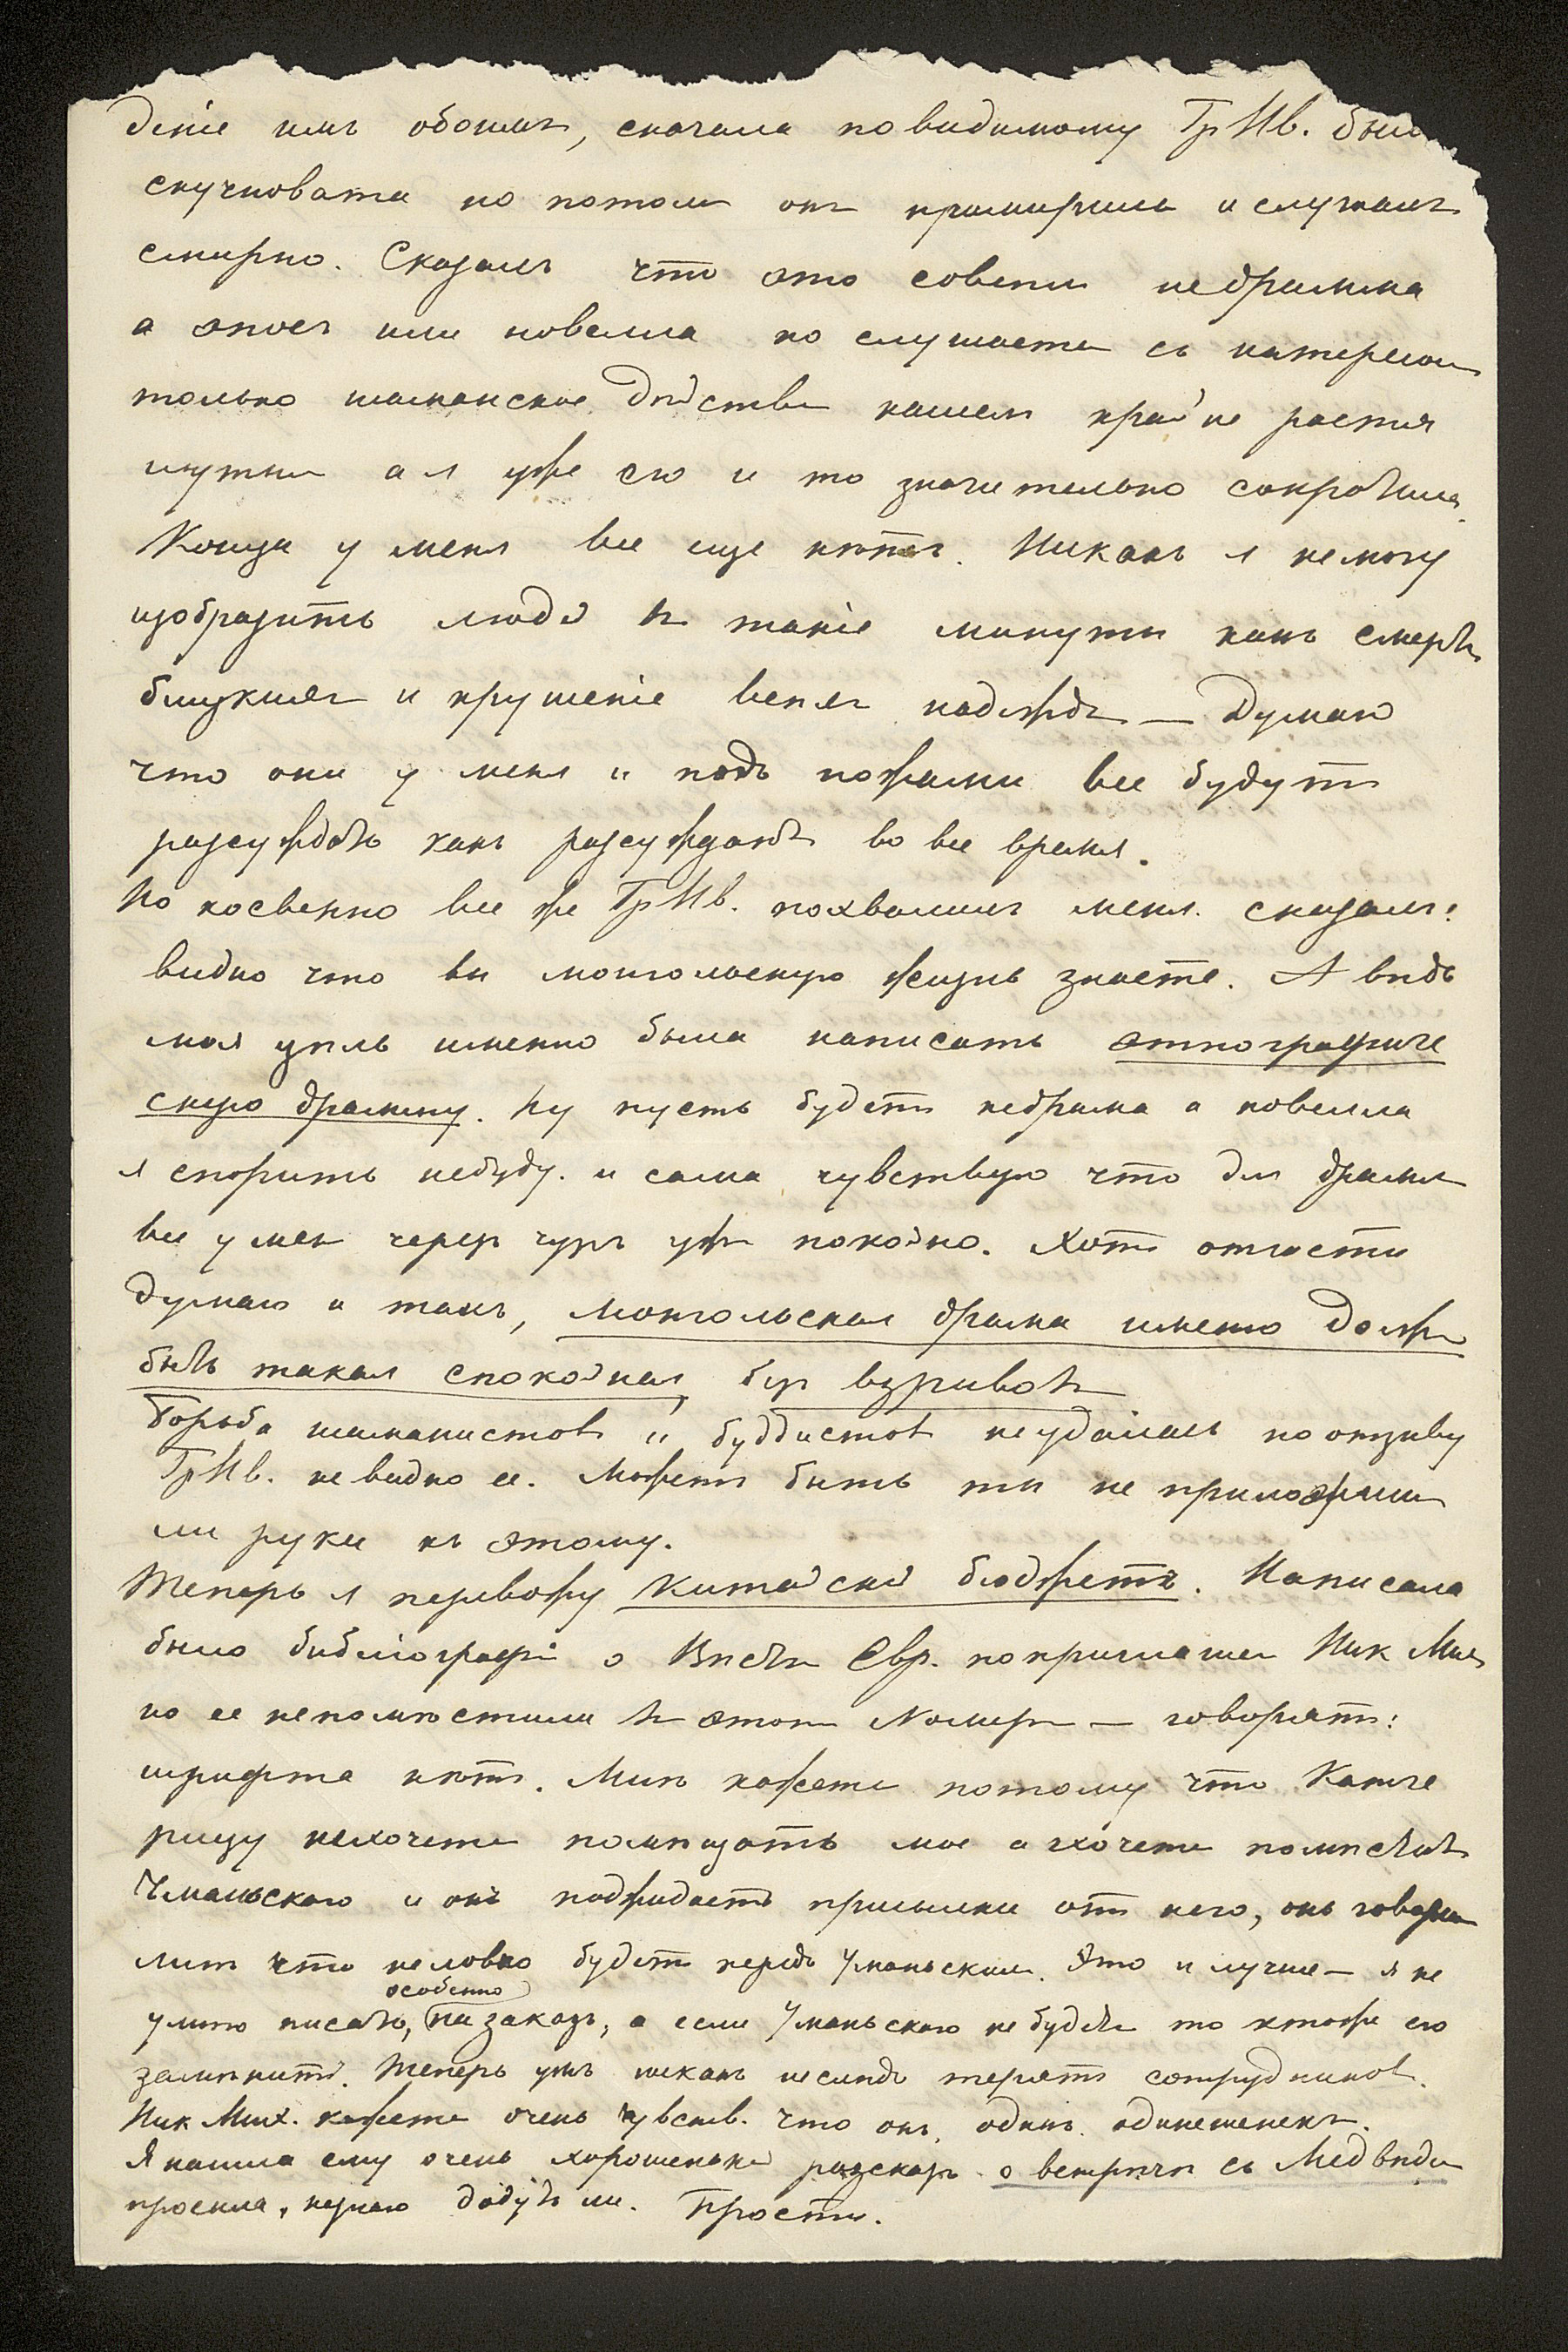 деніе имъ обоимъ, сначала повидимому ГрИв. было
скучновато но потомъ онъ примирился и слушалъ
смирно. Сказалъ что это совсемъ недрамма
а эпосъ или новелла но слушается съ интересомъ
только шаманское дѣйствіе нашелъ крайне растя
нутым а я уже его и то значительно сократила.
Конца у меня все еще нѣтъ. Никакъ я немогу
изобразить людей въ такіе минуты какъ смерть
ближнихъ и крушеніе всѣхъ надеждъ — Думаю
что они у меня и подъ ножами все будутъ
разсуждать какъ разсуждаютъ во все время.
Но косвенно все же ГрИв. похвалилъ меня. сказалъ:
видно что вы монгольскую жизнь знаете. А вѣдь
моя цѣль именно была написать этнографиче
скую драмму. Ну пусть будетъ недрама а новелла
я спорить небуду. и сама чувствую что для драмы
все у меня черезъ чуръ ужъ покойно. Хотя отчасти
думаю и такъ, монгольская драма именно должна
быть такая спокойная, безъ взрывовъ
Борьба шаманистовъ и буддистовъ неудалась по отзыву
ГрИв. не видно ее. Можетъ быть ты не приложишь
ли руки къ этому.
Теперь я перевожу китайскій бюджетъ. Написала
было библіографію о Вѣстн. Евр. по приглашен Ник Мих
но ее непомѣстили въ этотъ Номеръ — говорятъ:
шрифта нѣтъ. Мнѣ кажется потому что Катте
рицу нехочется помѣщать мое а хочется помѣстить
Уманьскаго и онъ поджидаетъ присылки отъ него, онъ говорилъ
мнѣ что неловко будетъ передъ Уманьскимъ. Это и лучше — я не
особенно
умѣю писать, на заказъ, а если Уманьскаго не будетъ то ктоже его
замѣнитъ. Теперь ужъ никакъ неслѣдъ терять сотрудниковъ.
Ник Мих. кажется очень чувств. что онъ одинъ одинешенекъ.
Я нашла ему очень хорошенькій разсказъ о встрѣчѣ съ Медвѣдемъ
просила, незнаю дадутъ ли. Прости.